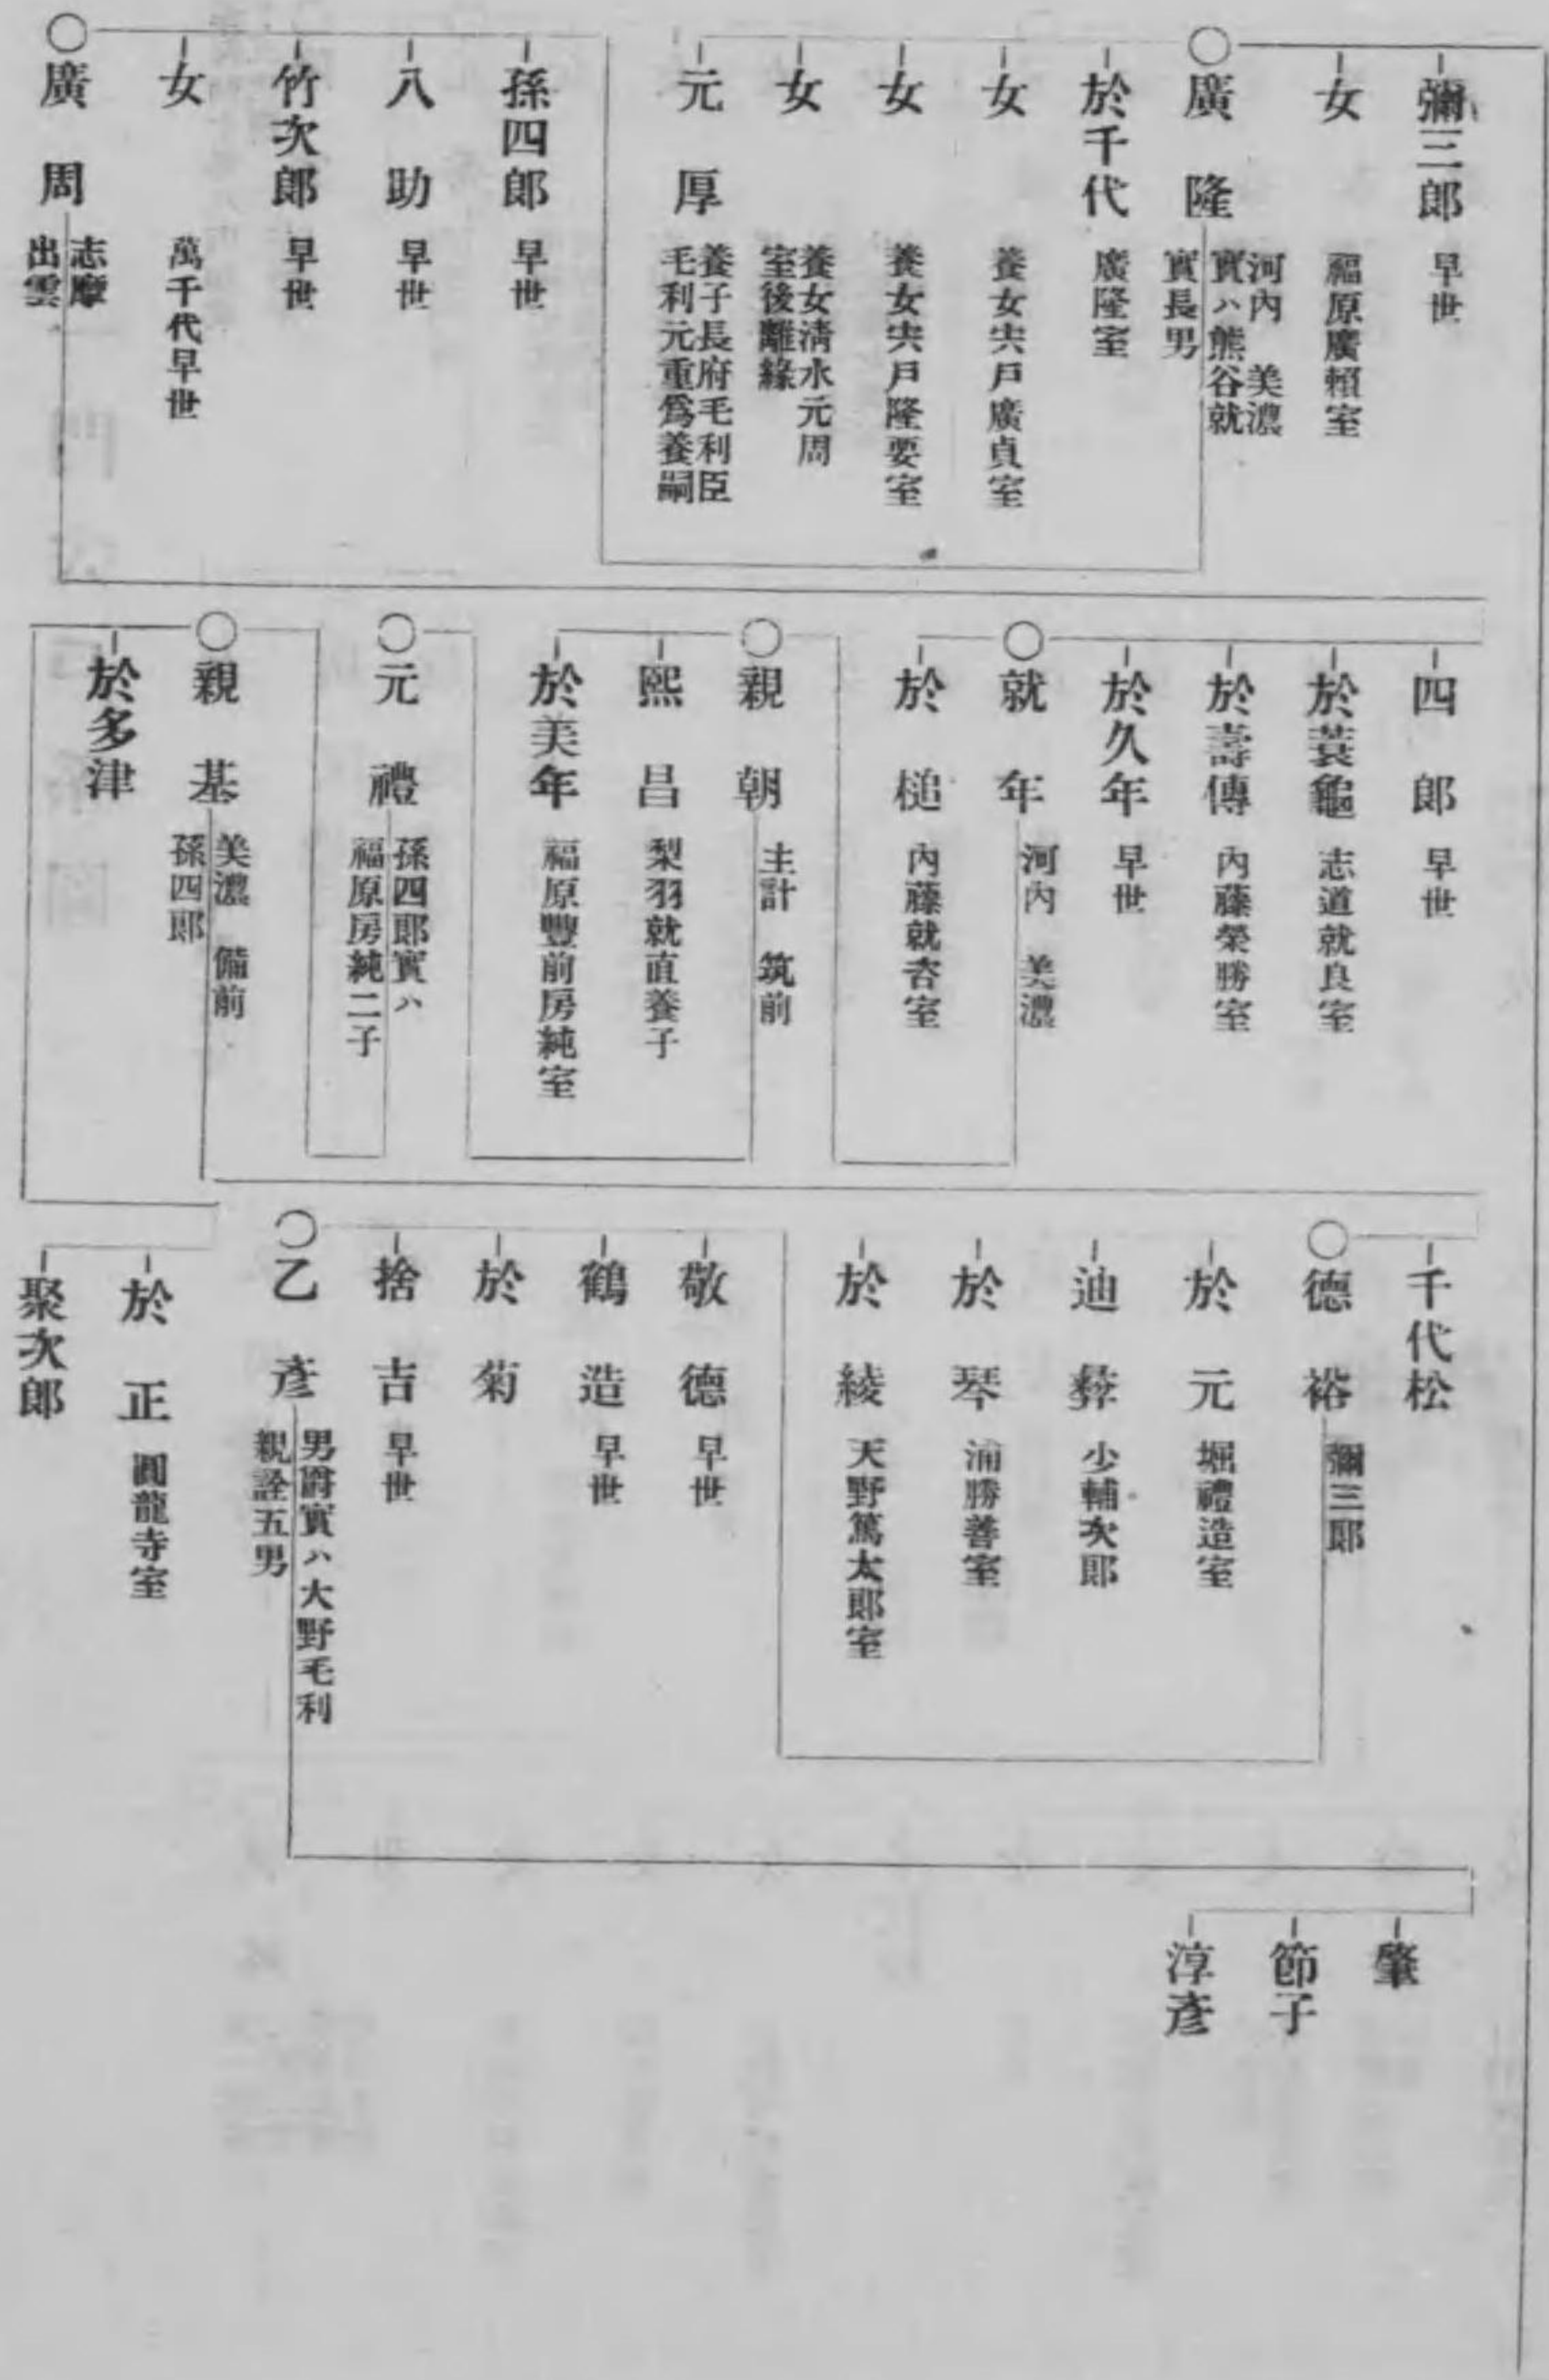 彌三郎 早世
女 福原廣賴室
○廣隆 河內 美濃
實ハ熊谷就
實長男
於千代 廣隆室
女 養女宍戶廣貞室
女 養女宍戶隆要室
女 養女淸水元周
室後離緣
元厚 養子長府毛利臣
毛利元重爲養嗣
孫四郎 早世
八助 早世
竹次郎 早世
女 萬千代早世
○廣周 志摩
出雲
四郎 早世
於蓑龜 志道就良室
於壽傳 內藤榮勝室
於久年 早世
○就年 河內 美濃
於槌 內藤就杏室
○親朝 主計 筑前
熙昌 梨羽就直養子
於美年 福原豐前房純室
○元禮 孫四郎實ハ
福原房純二子
○親基 美濃 備前
孫四郎
於多津
千代松
○德裕 彌三郎
於元 堀禮造室
迪彝 少輔次郎
於琴 浦勝善室
於綾 天野篤太郎室
敬德 早世
鶴造 早世
於菊
捨吉 早世
○乙彥 男爵實ハ大野毛利
親詮五男
於正 圓龍寺室
聚次郎
肇
節子
淳彥